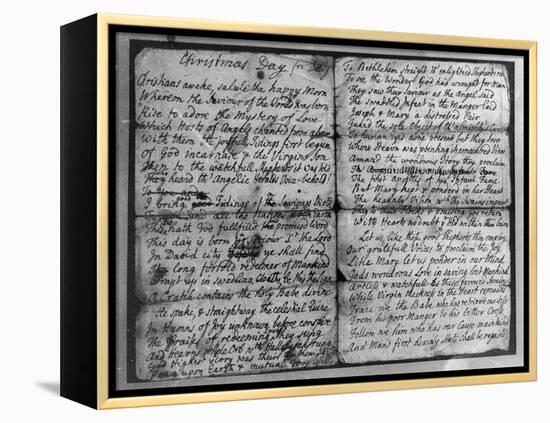 Christmas Day for
Christians awake, salute the happy Morn
Whereon the Saviour of the World was born
Rise to adore the Mystery of Love
Which Hosts of Angels chanted from above
With them the joyfull Tidings first begun
of God incarnate & the Virgins Son
Then to the watchfull Shepherds it was told
They heard th' Angelic Heralds Voice behold
I bring good Tidings of Saviours Birth
To and all the Nations upon Earth
This day hath God fulfill'd the promis'd word
This day is born Saviour the Lord
In Davids city ye shall find
The long foretold redeemer of Mankind
Wrapt up in swadling Cloaths
A Cratch contains the Holy Babe divine
He spake, & straightway the celestial Quire
In Hymns of Joy unknown before conspire
The Praises of redeeming Love they sung
And Heavns whole Orb with Hallelujahs rung
Gods Highest Glory was their
Peace upon Earth & mutual good
To Bethlehem straight th' enlightned Shepherds ran
To see the Wonder God had wrought for Man
They saw their Saviour as the Angel said
The swaddled Infant in the Manger laid
Joseph & Mary a distressed Pair
Guard the sole Object of th' almighty's Care
To human eyes none present but they two
Where Heavn was
Amaz'd the wondrous Story they proclaim
The first Apostles of his Infant Fame
But Mary kept & ponder'd in her Heart
The heavnly Vision
They to their Flocks & praising God return
With Hearts no doubt that did within them burn
Let us like these good Shepherds then employ
Our gratefull Voices to proclaim the Joy
Like Mary let us ponder in our Mind
Gods wondrous Love in saving lost Mankind
Artless & watchfull as these
While Virgin Meekness in the Heart remains
Trace we the Babe who has retriev'd our Loss
From his poor Manger to his bitter Cross
Follow we him who has our Cause maintain'd
And Mans first heavnly State shall be regain'd